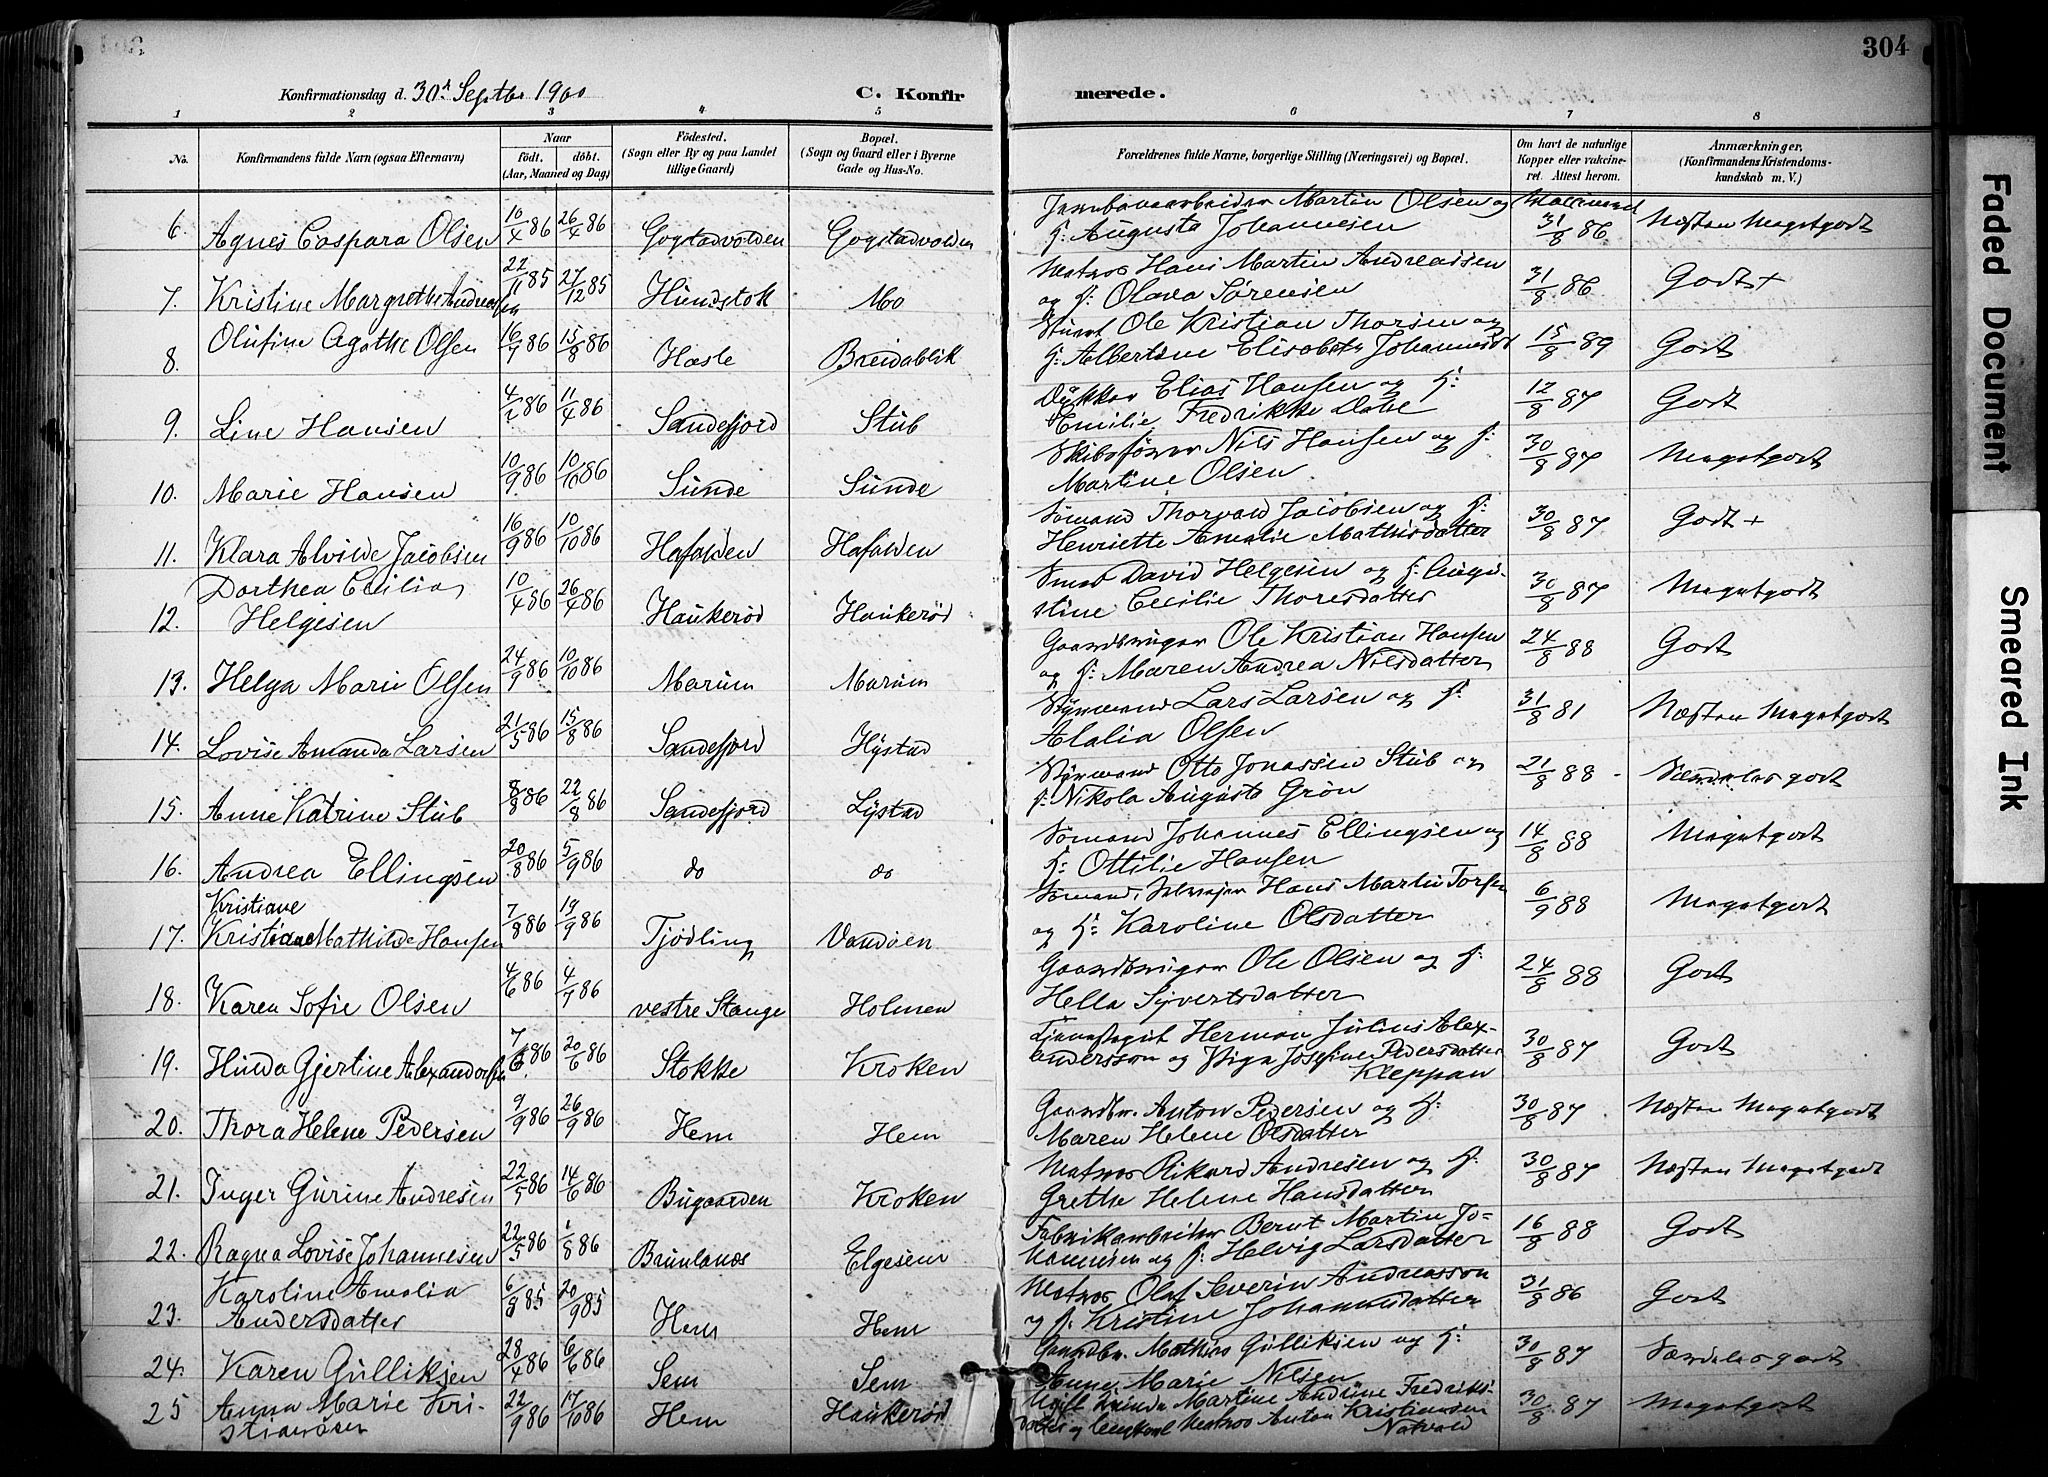 304
Konfirmationsdag d. 30t Septbr 1900
C. Konfirmerede.
1 2 3 4 5 6 7 8
No.
Konfirmandens fulde Navn (ogsaa Efternavn)
Naar
født. døbt.
(Aar, Maaned og Dag)
Födested.
(Sogn eller By og paa Landet
tillige Gaard)
Bopæl.
(Sogn og Gaard eller i Byerne
Gade og Hus-No.
Forældrenes fulde Navne, borgerlige Stilling (Næringsvei) og Bopæl.
Om havt de naturlige
Kopper eller vakcine-
ret. Attest herom.
Anmærkninger,
(Konfirmandens Kristendoms-
kundskab m. V.)
6. Agnes Caspara Olsen 10/4 86 26/4 86 Gogstadvolden Gogstadvolden
Jernbanearbeider Martin Olsen og
h: Augusta Johannesen 31/8 86 Næsten Megetgodt
7. Kristine Margrethe Andreassen 22/11 85 27/12 85 Hundstok Mo
Matros Hans Martin Andreassen
og h: Olava Sørensen 31/8 86 Godt +
8. Olufine Agathe Olsen 16/7 86 15/8 86 Hasle Breidablik
Stuert Ole Kristian Thorsen og
h: Albertine Elisabeth Johannesdt 15/8 89 Godt
9. Line Hansen 4/2 86 11/4 86 Sandefjord Stub
Dykker Elias Hansen og h:
Emilie Fredrikke Dahl 12/8 87 Godt
10. Marie Hansen 10/9 86 10/10 86 Sunde Sunde
Skibsfører Nils Hansen og h:
Martine Olsen 30/8 87 Megetgodt
11. Klara Alvilde Jacobsen 16/9 86 10/10 86 Hafalden Hafalden
Sømand Thorvald Jacobsen og h:
Henriette Amalie Mathisdatter 30/8 87 Godt +
12. Dorthea Cecilia
Helgesen 10/4 86 26/4 86 Haukerød Haukerød
Smed David Helgesen og h: Augu-
stine Cecilie Thoresdatter 30/8 87 Megetgodt
13. Helga Marie Olsen 24/9 86 10/10 86 Marum Marum
Gaardbruger Ole Kristian Hansen
og h: Maren Andrea Nilsdatter 24/8 88 Godt
14. Lovise Amanda Larsen 21/5 86 15/8 86 Sandefjord Hystad
Styrmand Lars Larsen og h:
Alalia Olsen 31/8 81 Næsten Megetgodt
15. Anne Katrine Stub 8/8 86 22/8 86 Sandefjord Lystad
Styrmand Otto Jonassen Stub og
h: Nikola Augusta Grøn 21/8 88 Særdeles godt
16. Andrea Ellingsen 20/8 86 5/9 86 do do
Sømand Johannes Ellingsen og
h: Ottilie Hansen 14/8 88 Megetgodt
Kristiane
17. Kristiane Mathilde Hansen 7/8 86 19/9 86 Tjødling Vandøen
Sømand, Selveier Hans Martin Torsen
og h: Karoline Olsdatter 6/9 88 Megetgodt
18. Karen Sofie Olsen 4/6 86 4/7 86 vestre Stange Holmen
Gaardbruger Ole Olsen og h:
Hella Syvertsdatter 24/8 88 Godt
19. Hulda Gjertine Alexandersen 7/6 86 20/6 86 Stokke Kroken
Herman Julius Alex-
andersson og Josefine Pedersdatter
Kleppan 30/8 87 Godt
20. Thora Helene Pedersen 9/9 86 26/9 86 Hem Hem
Gaardbr. Anton Pedersen og h:
Maren Helene Olsdatter 30/8 87 Næsten Megetgodt
21. Inger Gurine Andresen 22/5 86 14/6 86 Bugaarden Kroken
Matros Rikard Andresen og h:
Grethe Helene Hansdatter 30/8 87 Næsten Megetgodt
22. Ragna Lovise Johannesen 22/5 86 1/8 86 Brunlanæs Elgesem
Fabrikarbeider Bernt Martin Jo-
hannesen og h: Helvig Larsdatter 16/8 88 Godt
23. Karoline Amalia
Andersdatter 6/8 85 20/9 85 Hem Hem
Matros Olaf Severin Andreasson
og h: Kristine Johannesdatter 31/8 86 Godt
24. Karen Gulliksen 28/4 86 6/6 86 Sem Sem
Gaardbr. Mathias Gulliksen og h:
Anne Marie Nilsen 30/8 87 Særdeles godt
25 Anna Marie Kri-
stiansen 22/9 86 17/10 86 Hem Haukerød
Ugift kvinde Martine Andrine Fredriks-
datter og Matros Anton Kristiansen
Natvald 30/8 87 Megetgodt
Faded Document
Smeared Ink